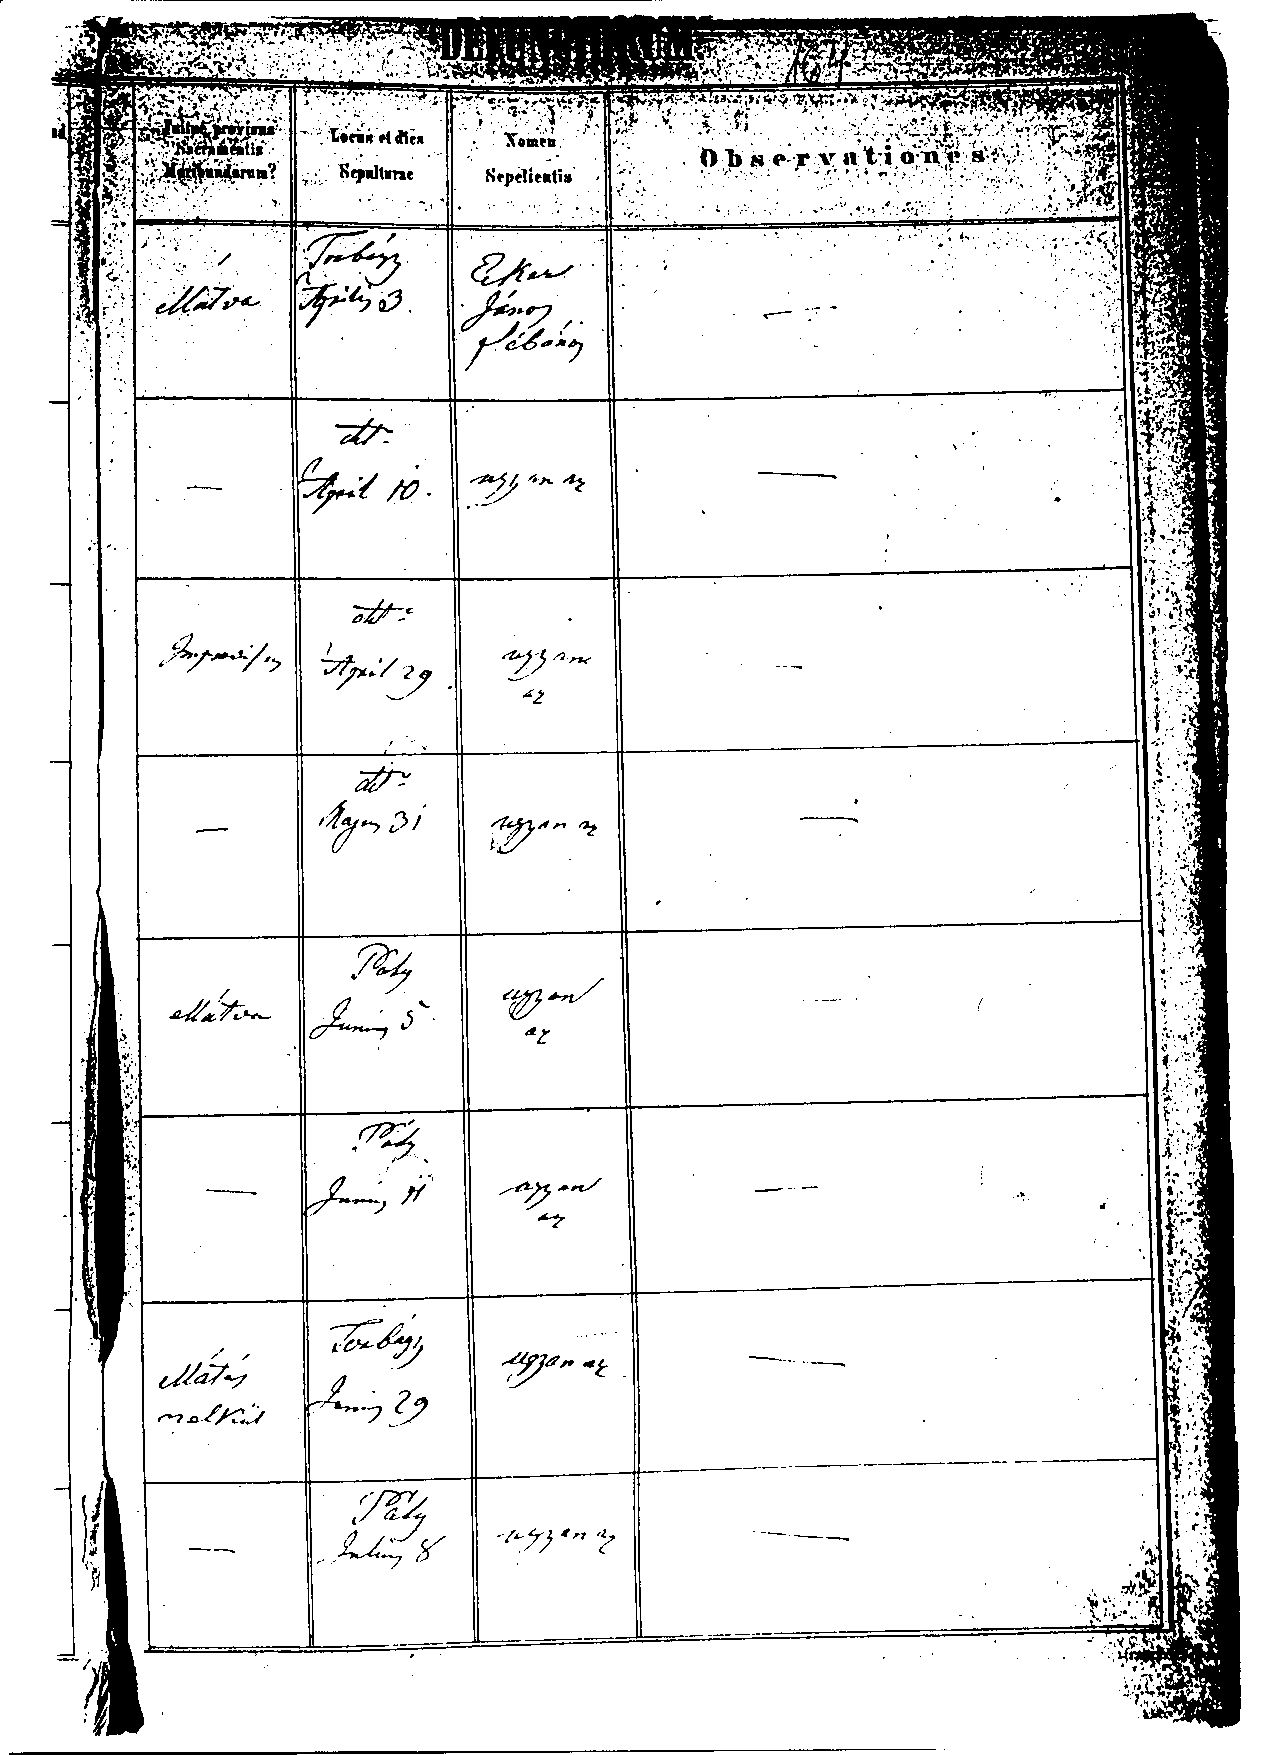 DEFUNCTORUM
164
Fuitne provisus
Sacramentis
Moribundorum?
Locus et dies
Sepulturae
Nomen
Sepelientis
Observationes
Torbágy
Április 3.
Mátva
János
plébános
—
dtt.
April 10.
—
ugyan az
—
dtt.
April 29
Improvisus
ugyanaz
az
—
dtt.
Majus 31
—
ugyan az
—
Páty
Junius 5
Mátva
ugyan
az
—
Páty
Junius 11
—
ugyan
az
—
Torbágy
Junius 29
Mátás
nelkül
ugyan az
—
Páty
Julius 8
—
ugyan az
—